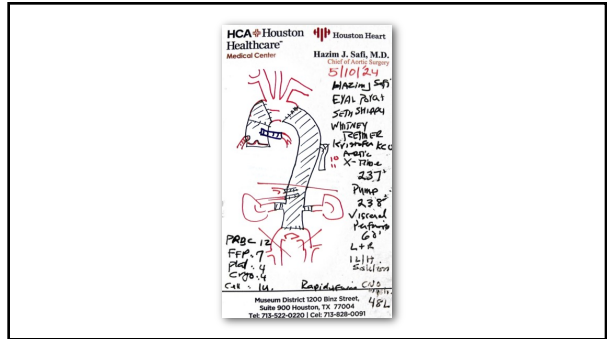 HCA Houston
Healthcare™
Medical Center
Houston Heart
Hazim J. Safi, M.D.
Chief of Aortic Surgery
5/10/24
Hazim J Safi
EYAL Porat
SETH
WHITNEY
Kristofer
Aortic
X-Time
10
11
237'
Pump
238'
Visceral
60'
L+R
1L/H
PRBC 12
FFP. 7
Plat. 4
Cryo. 4
Cell. 14
48L
Museum District 1200 Binz Street,
Suite 900 Houston, TX 77004
Tel: 713-522-0220 | Cel: 713-828-0091